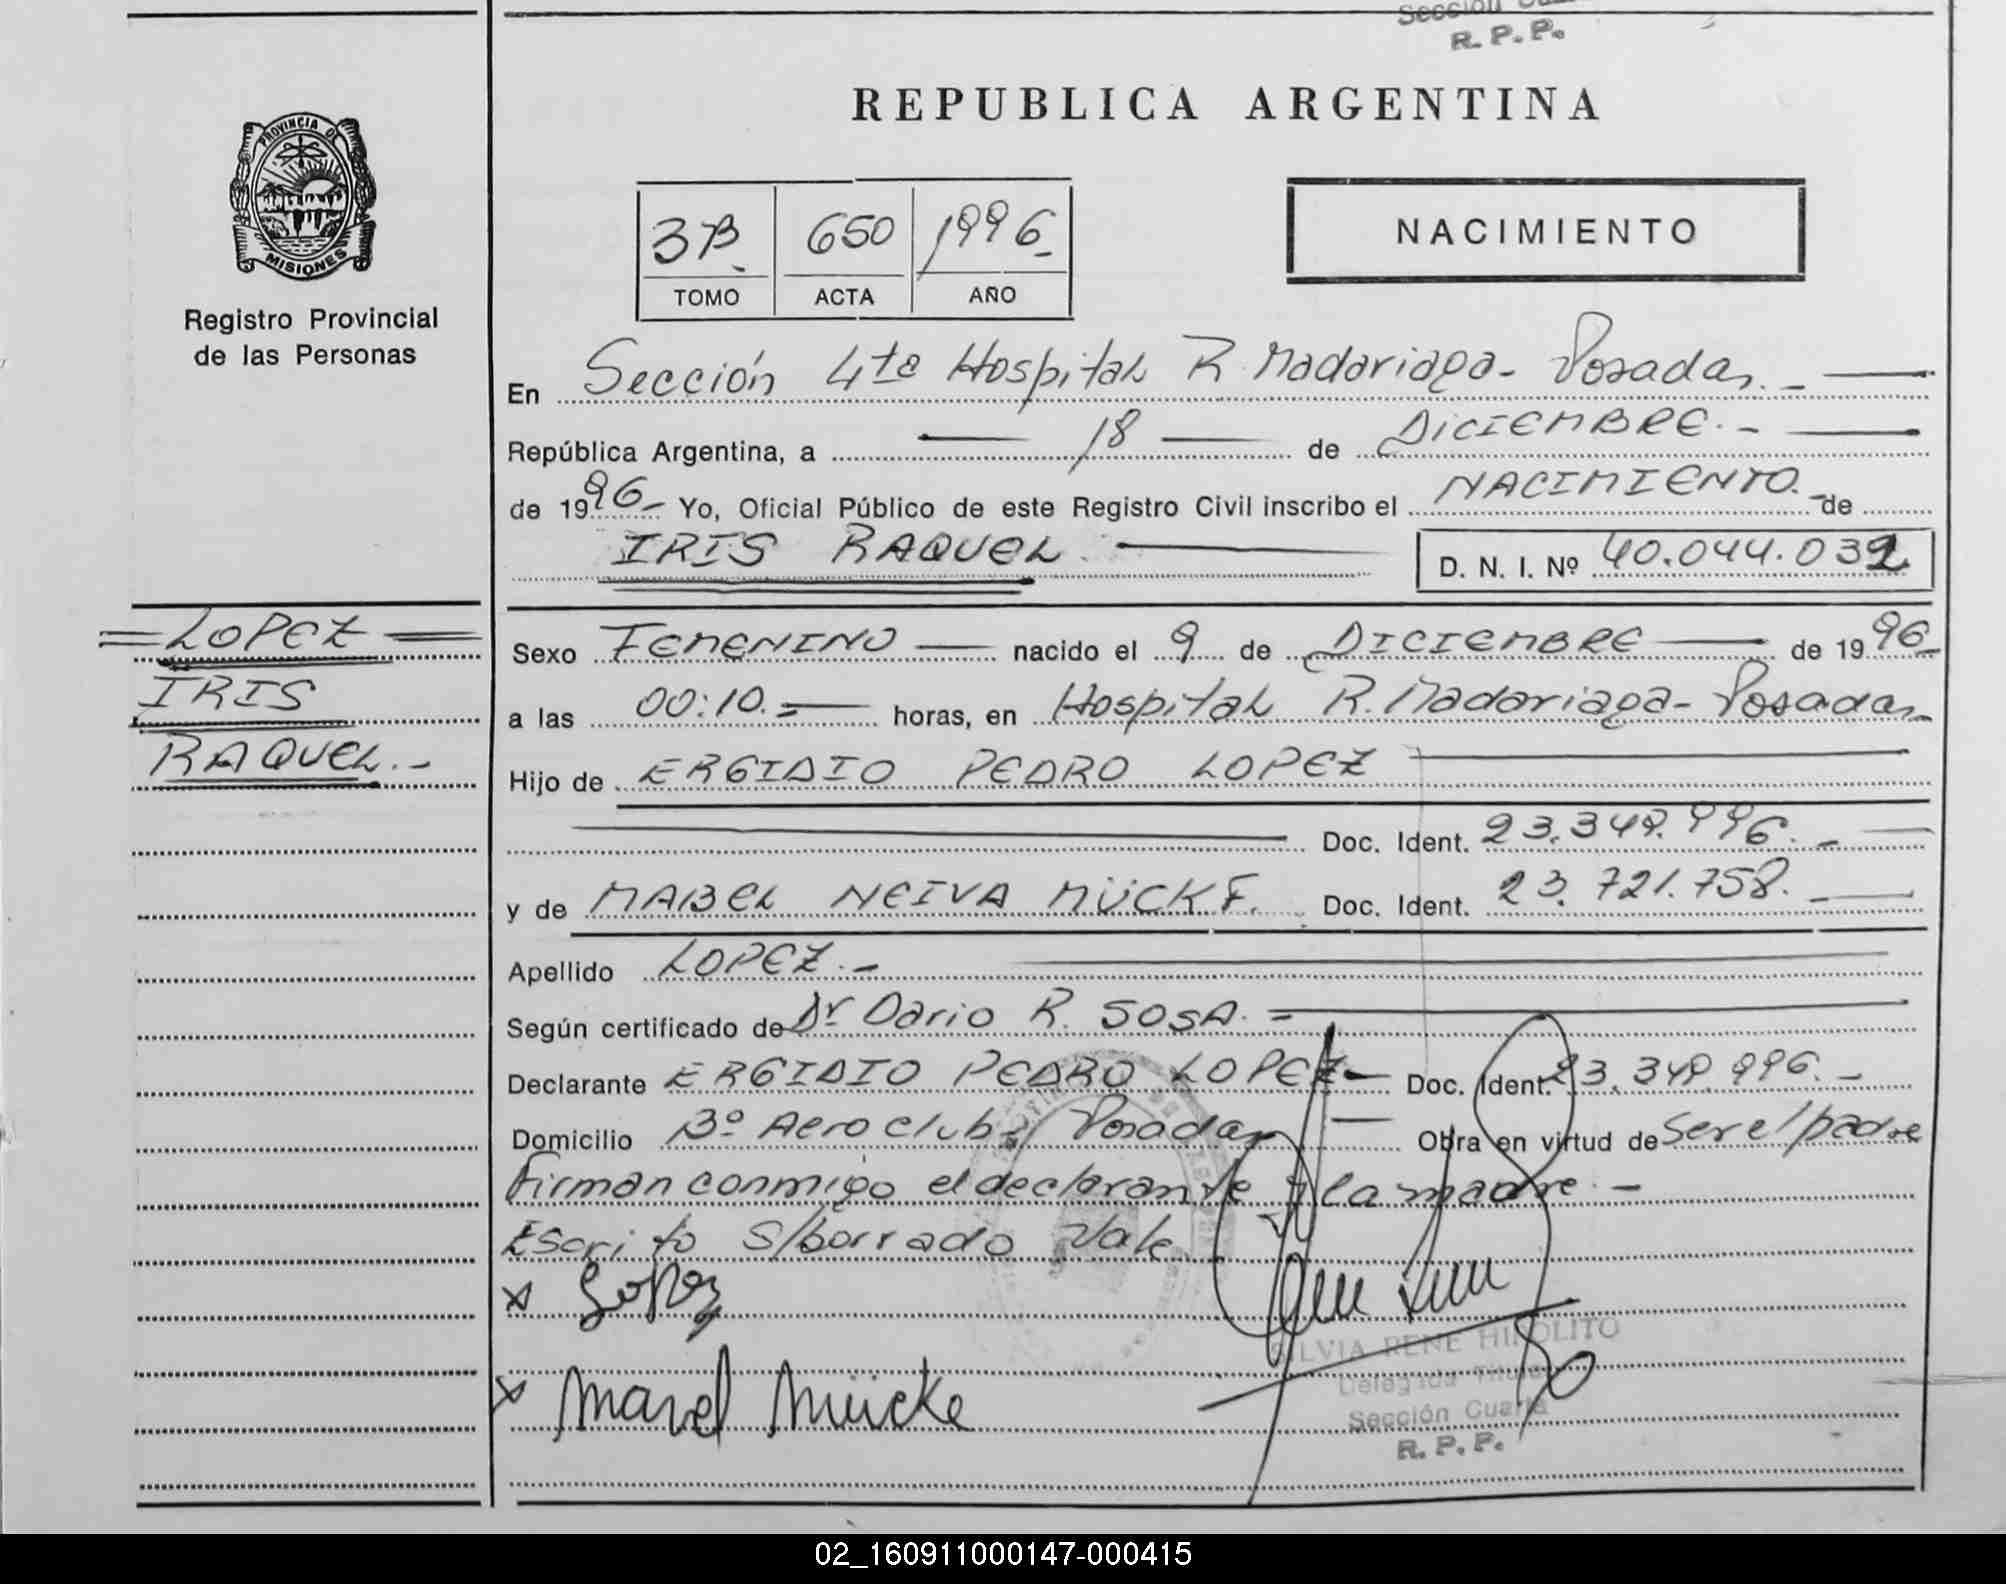 Sección
R. P. P.
REPUBLICA ARGENTINA
PROVINCIA DE
MISIONES
Registro Provincial
de las Personas
3B. 650 1996-
TOMO ACTA AÑO
NACIMIENTO
En Sección 4ta Hospital R. Madariaga - Posadas. -
República Argentina, a 18 de DICIEMBRE. -
de 1996- Yo, Oficial Público de este Registro Civil inscribo el NACIMIENTO. - de
IRIS RAQUEL D. N. I. Nº 40.044.032
LOPEZ
IRIS
RAQUEL. -
Sexo FEMENINO nacido el 9 de DICIEMBRE de 1996-
a las 00:10. - horas, en Hospital R. Madariaga - Posadas
Hijo de ERGIDIO PEDRO LOPEZ
Doc. Ident. 23.349.996. -
y de MABEL NEIVA MÜCKE. Doc. Ident. 23.721.758.
Apellido LOPEZ. -
Según certificado de Dr Dario R. SOSA. -
Declarante ERGIDIO PEDRO LOPEZ - Doc. Ident. 23.349.996. -
Domicilio Bº Aero club, Posadas Obra en virtud de Ser el padre
Firman conmigo el declarante y la madre. -
Escrito s/borrado Vale
x Lopez
SILVIA RENE HIPOLITO
Delegada Titular
x Mabel Mücke
Sección Cuarta
R. P. P.
02_160911000147-000415